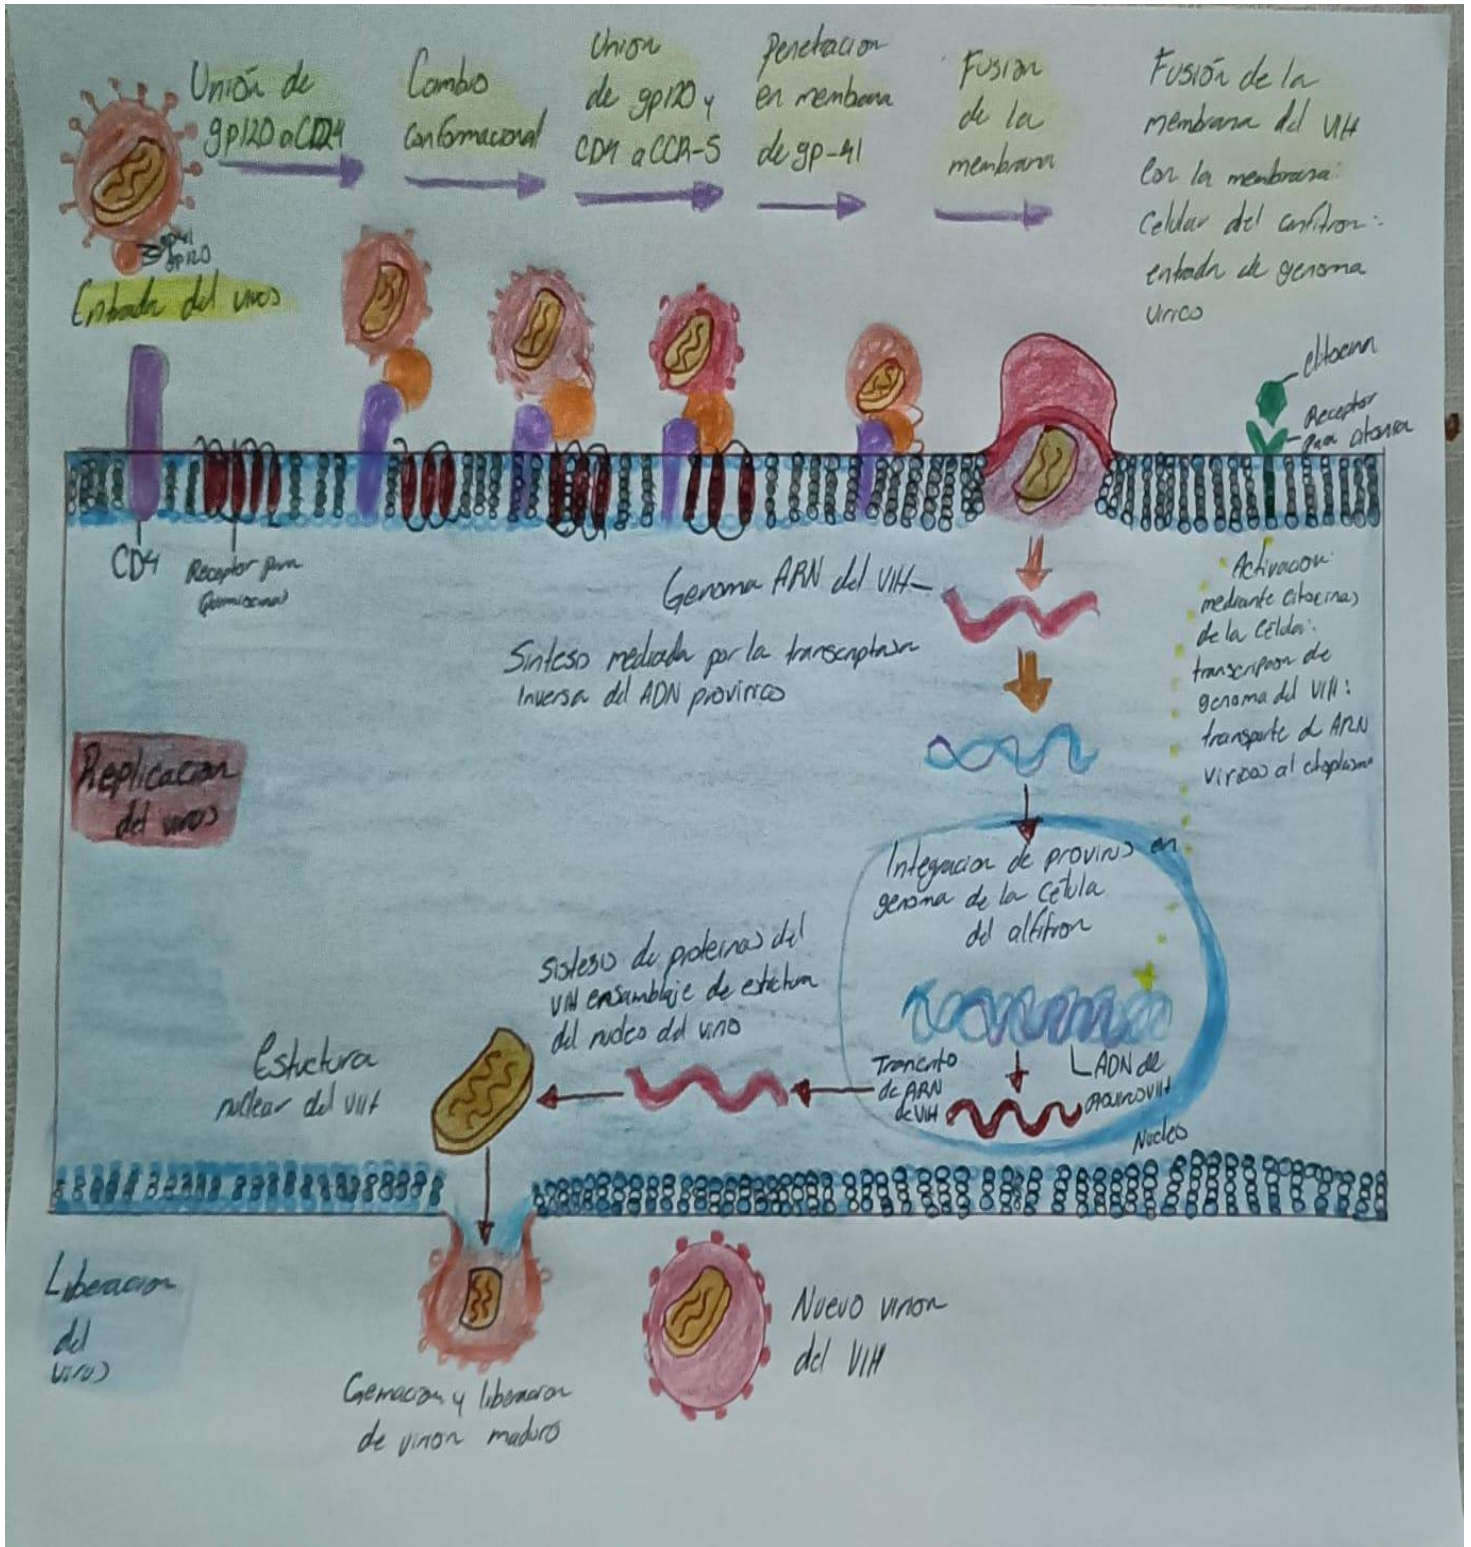 Unión de
gp120 a CD4
Cambio
conformacional
Union
de gp120 y
CD4 a CCR-5
Penetracion
en membrana
de gp-41
Fusion
de la
membrana
Fusión de la
membrana del VIH
con la membrana
celular del
entrada de genoma
virico
gp41
gp120
Entrada del virus
Receptor
para citocina
CD4
Receptor para
Genoma ARN del VIH
mediada por la transcriptasa
inversa del ADN provirico
Activacion
mediante citocinas
de la celula:
transcripcion de
genoma del VIH:
transporte d ARN
viricos al citoplasma
Replicacion
del virus
Integracion de provirus en
genoma de la celula
del alfitron
de proteinas del
VIH ensamblaje de
del
Estuctura
nuclear del VIH
de ARN
de VIH
ADN de
Nucleo
Liberacion
del
virus
Gemacion y liberacion
de virion maduro
Nuevo virion
del VIH